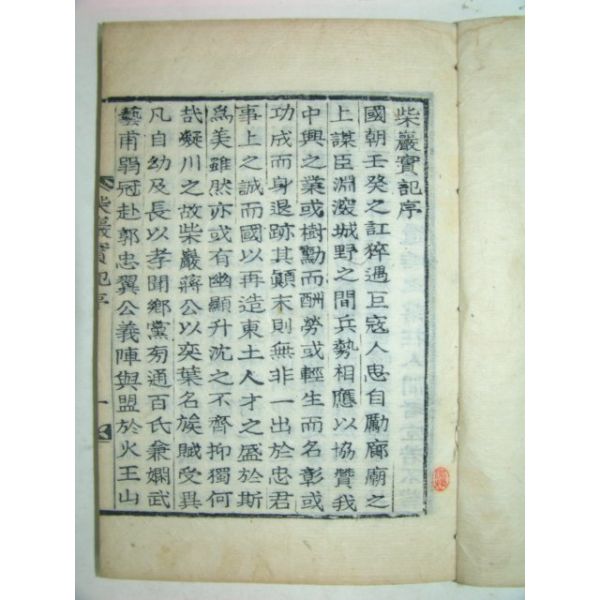 柴巖實記序
國朝壬癸之訌猝遇巨寇人思自勵廊廟之
上謀臣淵邃城野之間兵勢相應以協贊我
中興之業或樹勳而酬勞或輕生而名彰或
功成而身退跡其顚末則無非一出於忠君
事上之誠而國以再造東土人才之盛於斯
爲美雖然亦或有幽顯升沈之不齊抑獨何
哉凝川之故柴巖蔣公以奕葉名族賦受異
凡自幼及長以孝聞鄕黨有通百氏兼嫻武
藝甫弱冠赴郭忠翼公義陣與盟於火王山
柴巖實記序
一